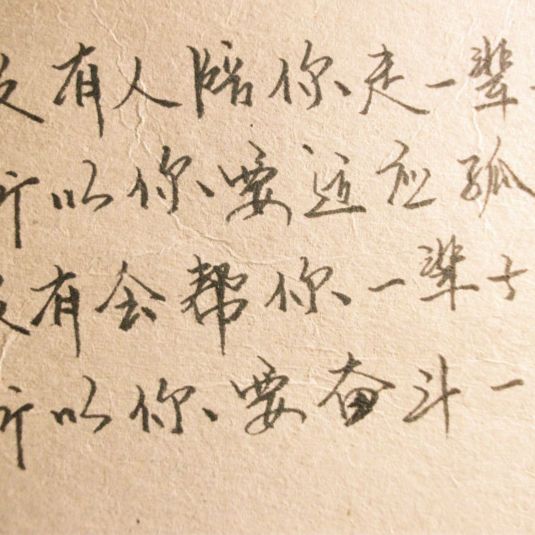 没有人陪你走一辈
所以你要适应孤
没有会帮你一辈子
所以你要奋斗一